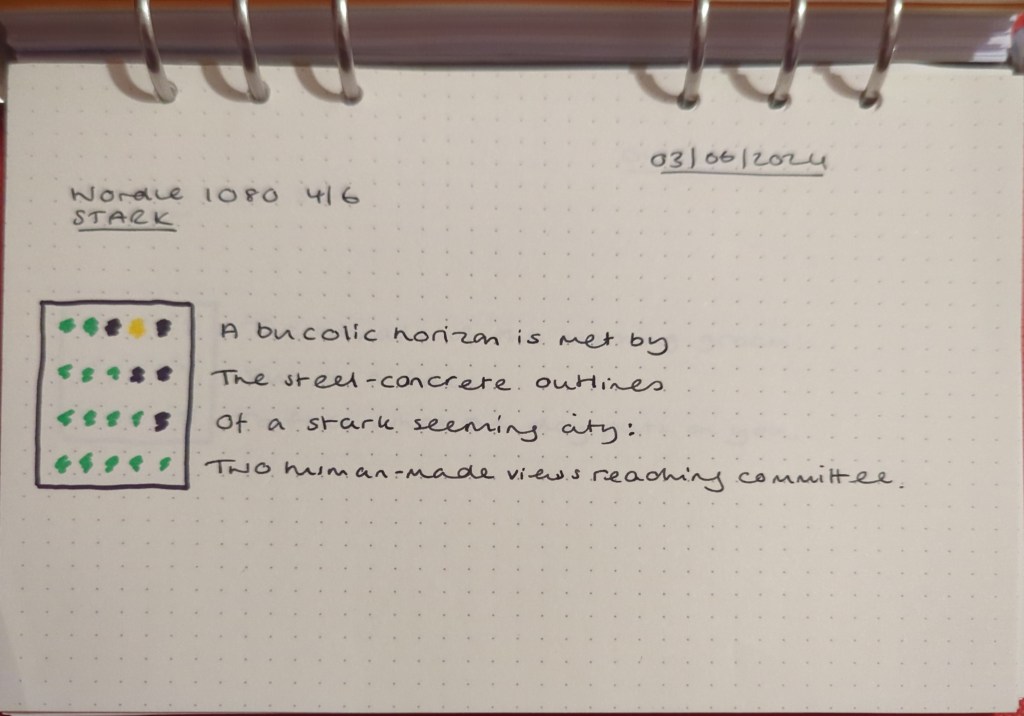 03/06/2024
Wordle 1080 4/6
STARK
A bucolic horizon is met by
The steel-concrete outlines
Of a stark seeming city:
Two human-made views reaching committee.